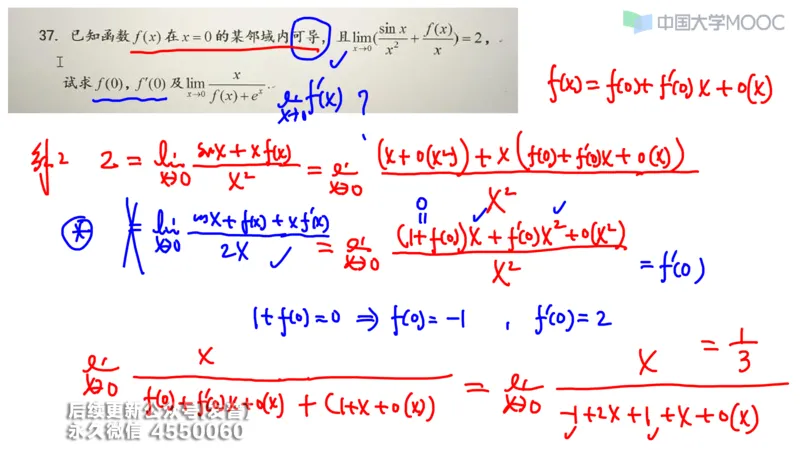 中国大学MOOC
37. 已知函数 f(x) 在 x=0 的某邻域内可导，且 lim_{x→0}(sin x / x² + f(x)/x)=2，
试求 f(0)，f′(0) 及 lim_{x→0} x/(f(x)+eˣ).
lim_{x→0} f′(x) ?
f(x) = f(0)+f′(0)x+o(x)
2 = lim_{x→0} (sinx+xf(x))/x² = lim_{x→0} ((x+o(x²))+x(f(0)+f′(0)x+o(x)))/x²
* = lim_{x→0} (cosx+f(x)+xf′(x))/2x = lim_{x→0} ((1+f(0))x+f′(0)x²+o(x²))/x² = f′(0)
0
1+f(0)=0 ⇒ f(0)=-1 , f′(0)=2
lim_{x→0} x/(f(0)+f′(0)x+o(x)+(1+x+o(x))) = lim_{x→0} x/(-1+2x+1+x+o(x)) = 1/3
永久微信 4550060